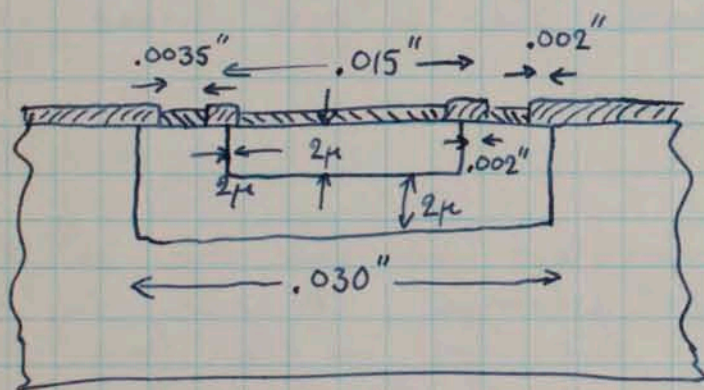 .0035" .015" .002"
2μ .002"
2μ 2μ
.030"